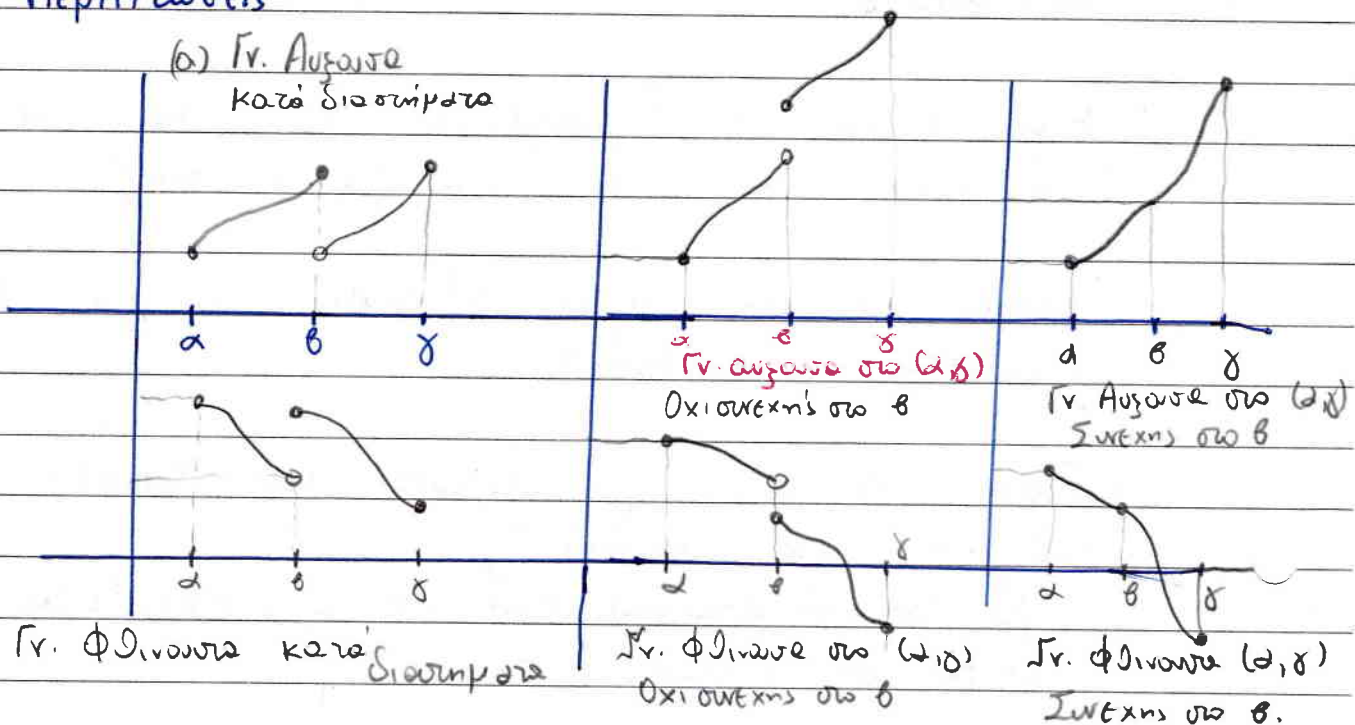 Περιπτώσεις
(α) Γν. Αυξουσα
κατά διαστήματα
α β γ
α β γ
Γν. αυξουσα στο (α,γ)
Οχι συνεχής στο β
α β γ
Γν Αυξουσα στο (α,γ)
Συνεχης στο β
α β γ
Γν. Φθινουσα κατά
διαστηματα
α β γ
Γν. Φθινουσα στο (α,γ)
Οχι συνεχης στο β
α β γ
Γν. Φθινουσα (α,γ)
Συνεχης στο β.